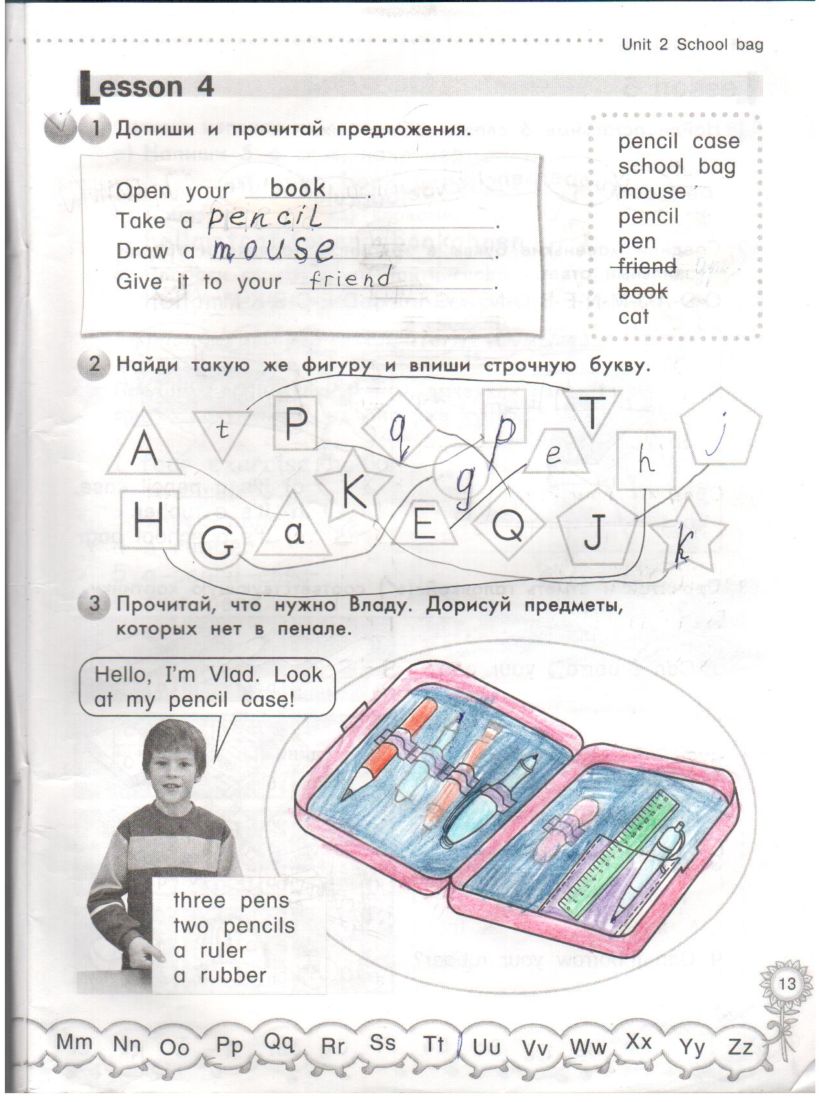 Unit 2 School bag
Lesson 4
1 Допиши и прочитай предложения.
Open your book.
Take a pencil.
Draw a mouse.
Give it to your friend.
pencil case
school bag
mouse
pencil
pen
friend
book
cat
2 Найди такую же фигуру и впиши строчную букву.
A t P q p T e h j
H G a K g E Q J k
3 Прочитай, что нужно Владу. Дорисуй предметы,
которых нет в пенале.
Hello, I'm Vlad. Look
at my pencil case!
three pens
two pencils
a ruler
a rubber
13
Mm Nn Oo Pp Qq Rr Ss Tt Uu Vv Ww Xx Yy Zz